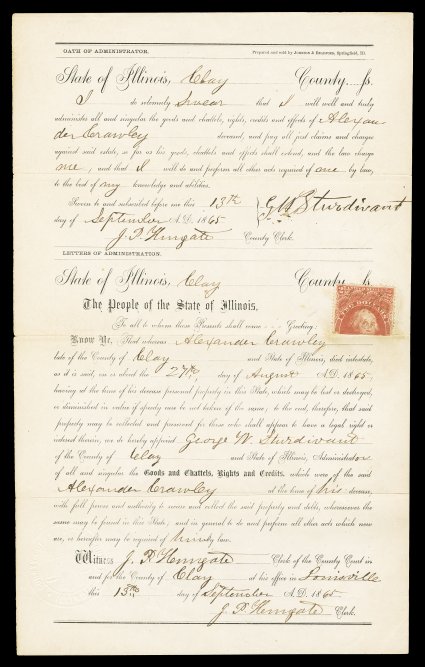 OATH OF ADMINISTRATOR. Prepared and sold by Johnson & Bradford, Springfield, Ill.
State of Illinois, Clay County. ss.
I do solemnly Swear that I will well and truly
administer all and singular the goods and chattels, rights, credits and effects of Alexan-
der Crawley deceased, and pay all just claims and charges
against said estate, so far as his goods, chattels and effects shall extend, and the law charge
me, and that I will do and perform all other acts required of me by law,
to the best of my knowledge and abilities.
Sworn to and subscribed before me this 13th G W Sturdivant
day of September A.D. 1865
County Clerk.
LETTERS OF ADMINISTRATION.
State of Illinois, Clay County ss.
The People of the State of Illinois,
To all to whom these Presents shall come, Greeting:
Know Ye, That whereas Alexander Crawley
late of the County of Clay and State of Illinois, died intestate,
as it is said, on or about the 27th day of August A.D. 1865,
having at the time of his decease personal property in this State, which may be lost or destroyed,
or diminished in value if speedy care be not taken of the same; to the end, therefore, that said
property may be collected and preserved for those who shall appear to have a legal right or
interest therein, we do hereby appoint George W Sturdivant
of the County of Clay and State of Illinois, Administrator
of all and singular the Goods and Chattels, Rights and Credits, which were of the said
Alexander Crawley at the time of his decease,
with full power and authority to secure and collect the said property and debts, wheresoever the
same may be found in this State, and in general to do and perform all other acts which now
are, or hereafter may be required of him by law.
Witness Clerk of the County Court in
and for the County of Clay at his office in Louisville
this 13th day of September A.D. 1865
Clerk.